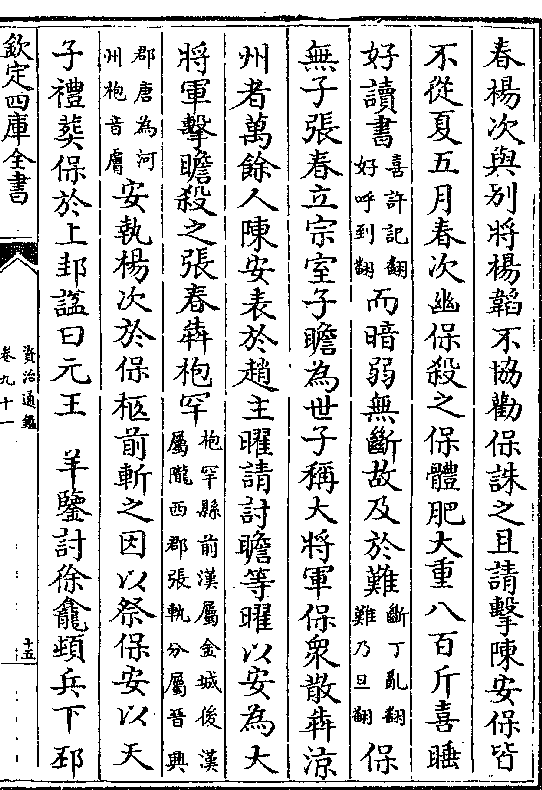 春楊次與别將楊韜不協勸保誅之且請擊陳安保皆
不從夏五月春次幽保殺之保體肥大重八百斤喜睡
好讀書喜許記翻好呼到翻而暗弱無斷故及於難斷丁亂翻難乃旦翻保
無子張春立宗室子瞻為世子稱大將軍保衆散犇涼
州者萬餘人陳安表於趙主曜請討瞻等曜以安為大
將軍擊瞻殺之張春犇枹罕枹罕縣前漢屬金城後漢屬隴西郡張軌分屬晉興
郡唐為河州枹音膚安執楊次於保柩前斬之因以祭保安以天
子禮葬保於上邽諡曰元王　羊鑒討徐龕頓兵下邳
欽定四庫全書
資治通鑑
卷九十一
十五